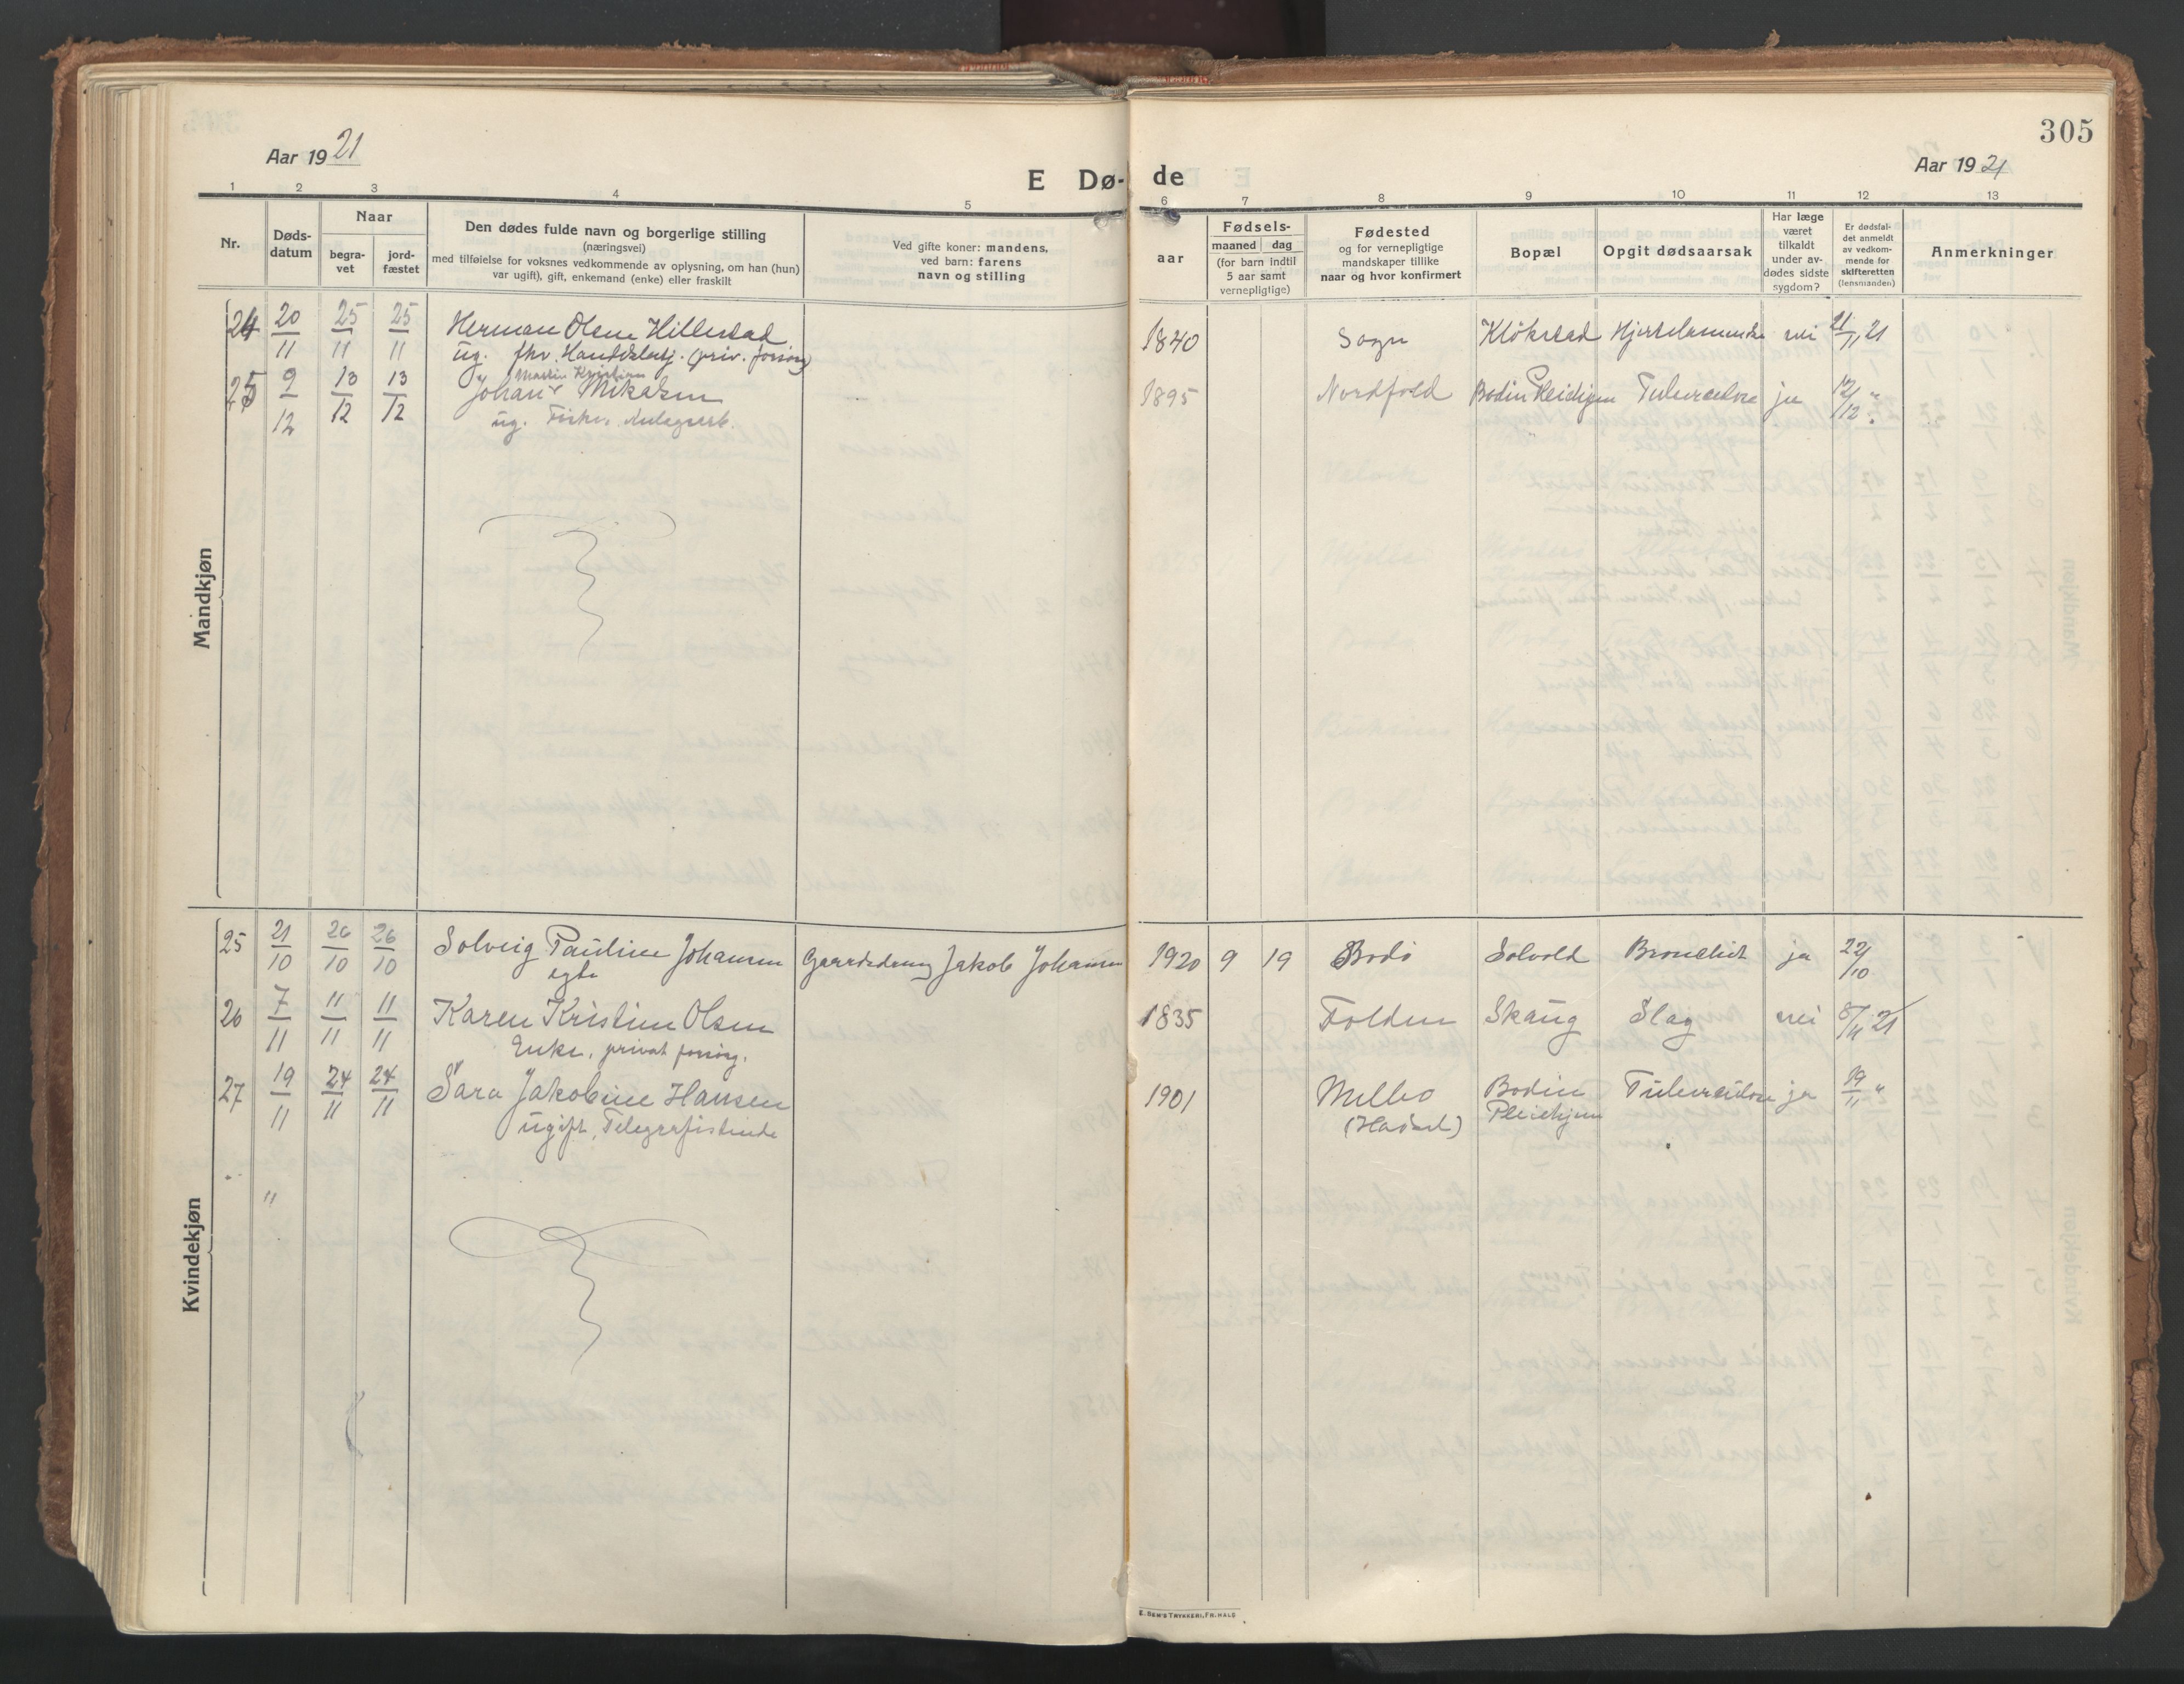 305
Aar 1921
Aar 1921
E Dø- de
1 2 3 4 5 6 7 8 9 10 11 12 13
Nr.
Døds-
datum
Naar
begra-
vet
jord-
fæstet
Den dødes fulde navn og borgerlige stilling
(næringsvei)
med tilføielse for voksnes vedkommende av oplysning, om han (hun)
var ugift), gift, enkemand (enke) eller fraskilt
Ved gifte koner: mandens,
ved barn: farens
navn og stilling
Fødsels-
aar
maaned dag
(for barn indtil
5 aar samt
vernepligtige)
Fødested
og for vernepligtige
mandskaper tillike
naar og hvor konfirmert
Bopæl
Opgit dødsaarsak
Har læge
været
tilkaldt
under av-
dødes sidste
sygdom?
Er dødsfal-
det anmeldt
av vedkom-
mende for
skifteretten
(lensmanden)
Anmerkninger
Mandkjøn
24 20/11 25/11 25/11 Herman Olsen Hillestad 1840 Sogn Klökstad nei 21/11 21
ug. fhv. (priv. forsørg)
Martin Kristian
25 9/12 13/12 13/12 Johan Mikalsen 1895 Nordfold Bodin Pleiehjem Tuberculose ja 12/12 "
ug. Fisker, Anlegsarb.
Kvindekjøn
25 21/10 26/10 26/10 Solveig Pauline Johansen Gaardsdreng Jakob Johansen 1920 9 19 Bodö Solvold Bronchit ja 22/10
egte
26 7/11 11/11 11/11 Karen Kristine Olsen 1835 Folden Skaug Slag nei 8/11 21
Enke, privat forsörg.
27 19/11 24/11 24/11 Sara Jakobine Hansen 1901 Melbo Bodin Tuberculose ja 19/11 "
ugift, Telegrafistinde (Hadsel) Pleiehjem
"
E. SEM'S TRYKKERI, FR.HALD